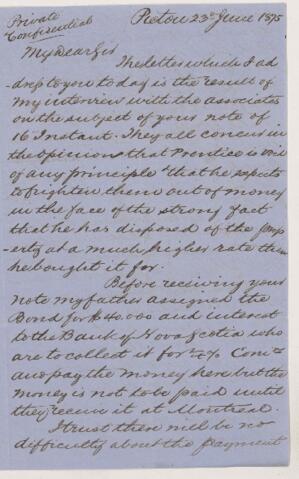 Private
Confidential
Pictou 23d June 1875
My Dear Sir
The letter which I ad
-dress to you today is the result of
my interview with the associates
on the subject of your note of
16 Instant. They all concur in
the opinion that Prentice is void
of any principle & that he expects
to frighten them out of money
in the face of the strong fact
that he has disposed of the prop
-erty at a much higher rate than
he bought it for.
Before receiving your
note my father assigned the
Bond for $40.000 and interest
to the Bank of Nova Scotia who
are to collect it for
and pay the money here but the
money is not to be paid until
they receive it at Montreal.
I trust there will be no
difficulty about the payment